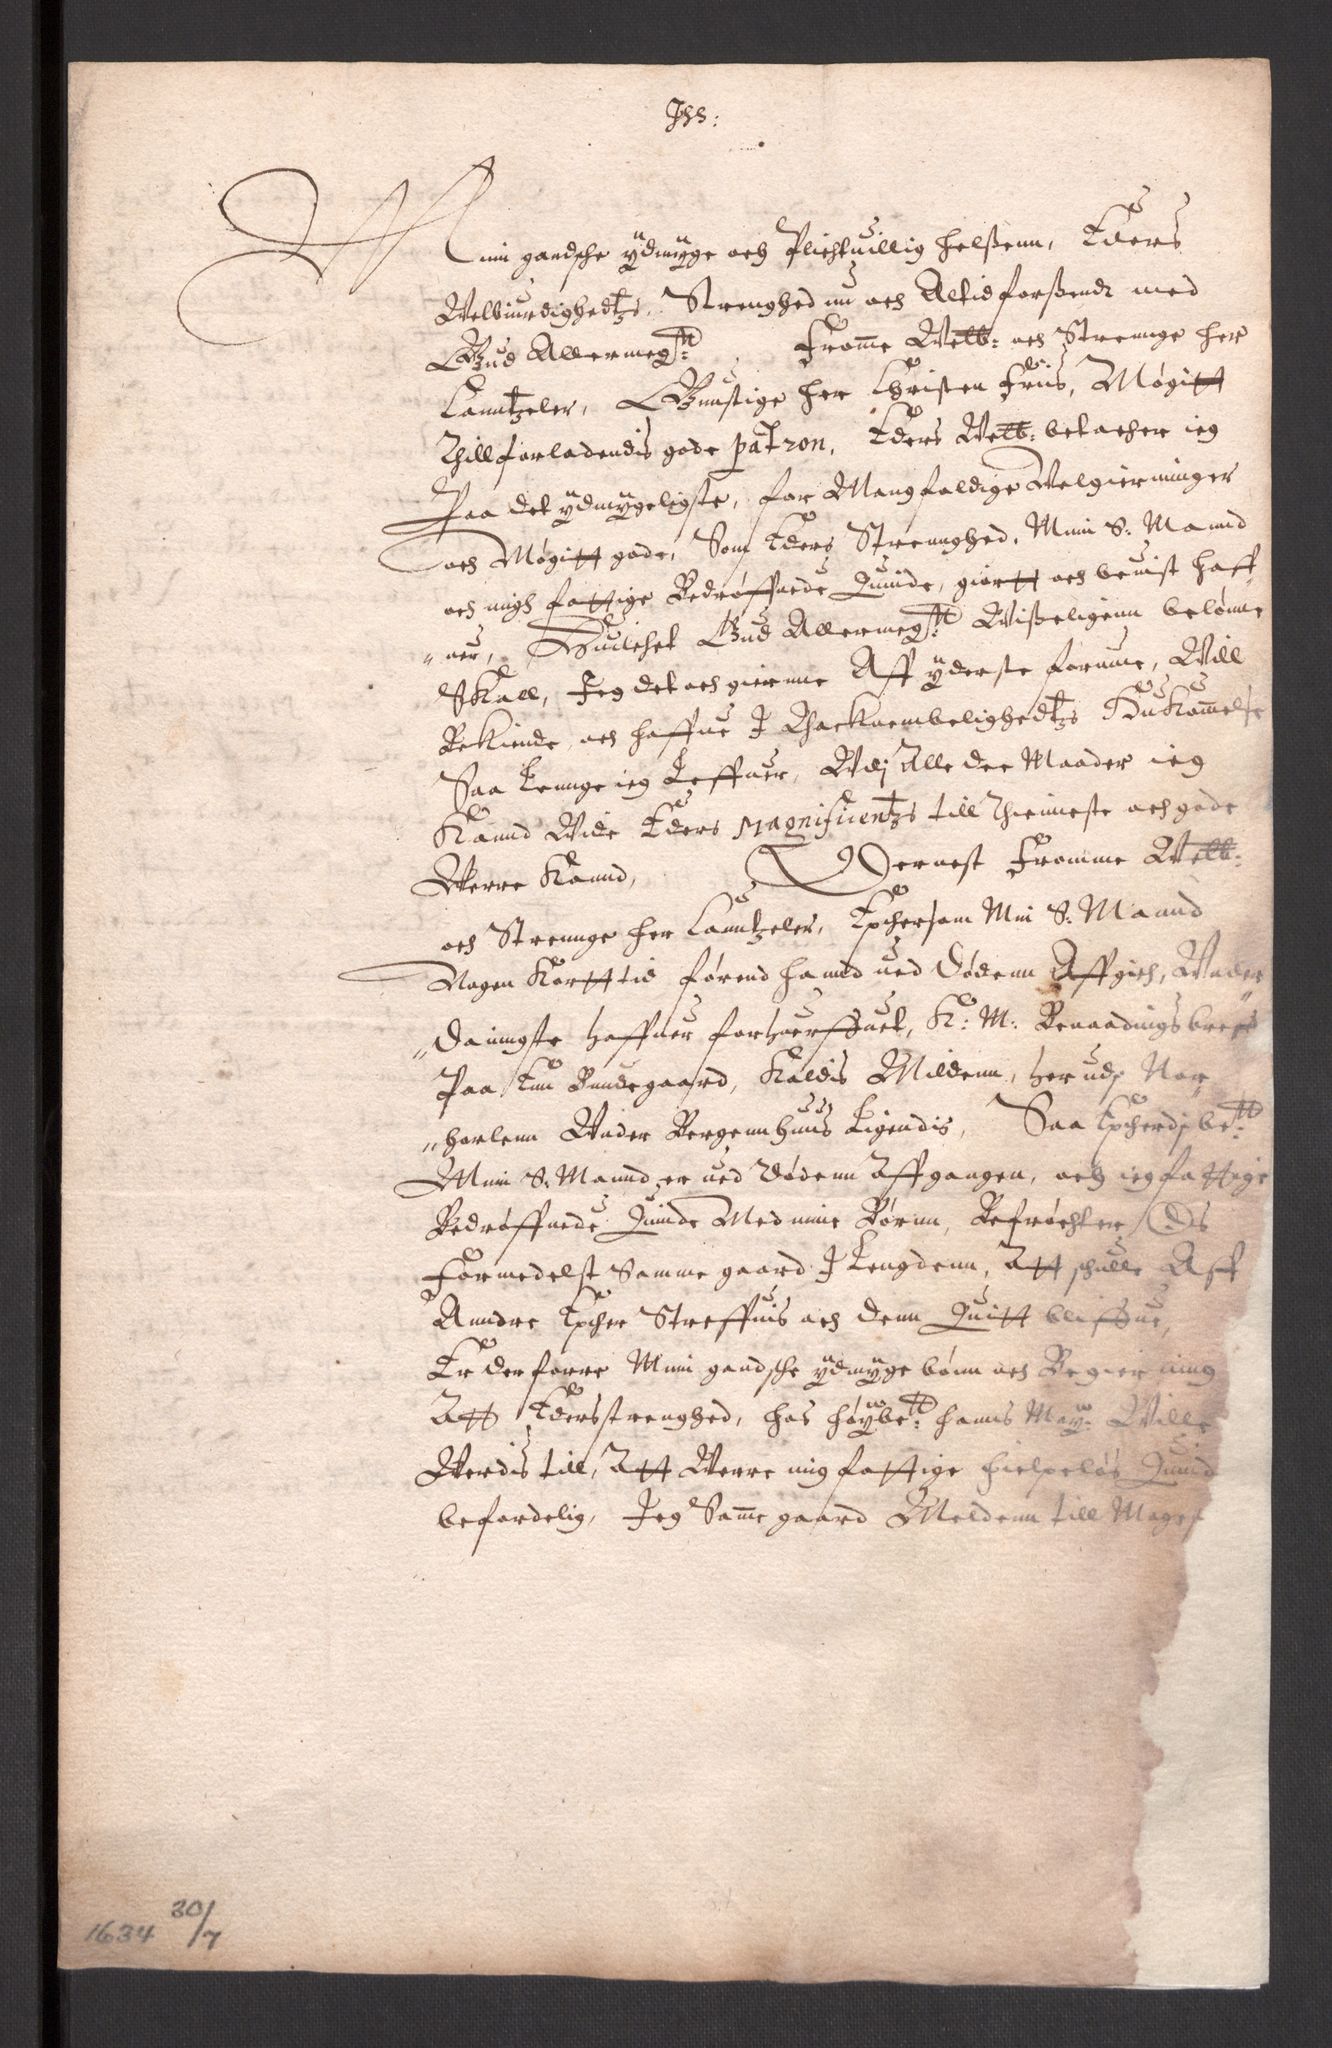 Jhs:
Min gandsche ÿdmÿge och Plichtuillig helßenn, Eders
Welbiurdighedtzs, Strenghed nu och Altid forßendt med
Gud Allermegtt: Fromme Welb: och Strennge her
Canntzeler, Gunstige her Christen Friis, Møgitt
Thillforladendis gode patron, Eders Welb: betacher ieg
Paa det ÿdmÿgeligste, for Mangfoldige Welgierninger
och Møgitt gode, Som Eders Strennghed, Min S: Mannd
och migh fattige Bedrøffuede Quinde, giortt och beuist haff-
"uer, Huilchet Gud Allermegtt: Wißeligenn belønne
Skall, Jeg det och giernne Aff ÿderste formue, Will
Bekiende, och haffue J Thacknembelighedtzs Hukommelse
Saa Lennge ieg Leffuer, Wdj Alle de Maader ieg
Kannd Wide Eders Magnificentzs till Thienneste och gode
Werre Kannd, Dernest Fromme Welb:
och Strennge her Canntzeler, Epthersom Min S: Mannd
Nogen Kortt tid førend hannd ued Dødenn Affgich, Under
"danigste haffuer forhuerffuet, K: M: Benaadings breff
Paa Enn Bundegaard, Kaldis Mildenn, her udj Nor-
"horlenn Under Bergennhuus Ligendis, Saa Eptherdj bett:
Min S: Mannd er ued Dødenn Affgangen, och ieg fattige
Bedrøffuede Quinde Med mine Børnn, Befrøchter Os
Formedelst Samme gaard J Lengdenn, Att schulle Aff
Anndre Epther Streffuis och denn Quitt bliffue,
Er derforre Min gandsche ÿdmÿge bønn och Begierning
Att Eders strenghed, hos høÿbett: hans Maÿ: Wille
Werdis till, Att Werre mig fattige hielpeløs Quinde
befordelig, Jeg Samme gaard Meldenn till Mages
1634 30/7